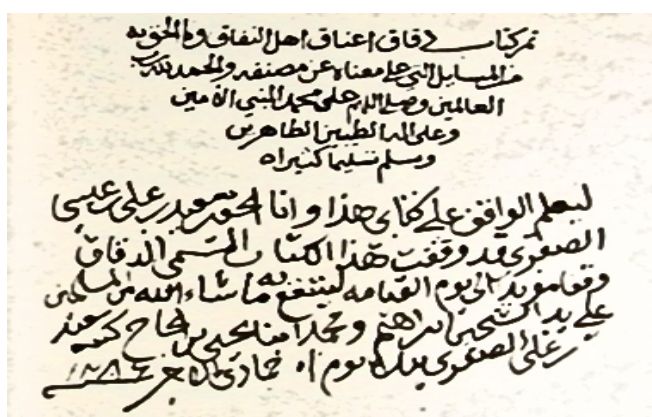 تم كتاب دقاق اعناق اهل النفاق وما الحق به
من المسايل التي على معناه عن مصنفه والحمد لله رب
العالمين وصلى الله على محمد النبي الأمين
وعلى اله الطيبين الطاهرين
وسلم تسليما كثيراه
ليعلم الواقف على كتابي هذا وانا سعيد بن علي بن عيسى
الصفري قد وقفت هذا الكتاب المسمى الدقاق
وقفا مؤبد الى يوم القيامه لينتفع به ما شاء الله من المسلمين
على يد الشيخين ابراهيم ومحمد ابنا يحيى بن الحاج كتبه سعيد
بن علي الصفري بيده يوم جمادى الاخر